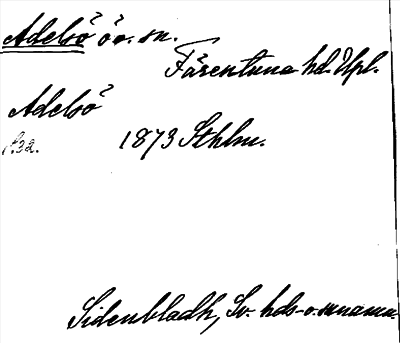 Adelsö ö o. sn.
Färentuna hd. Upl.
Adelsö
s. 32.
1873 Sthlm.
Sidenbladh, Sv. hds- o. snamn.